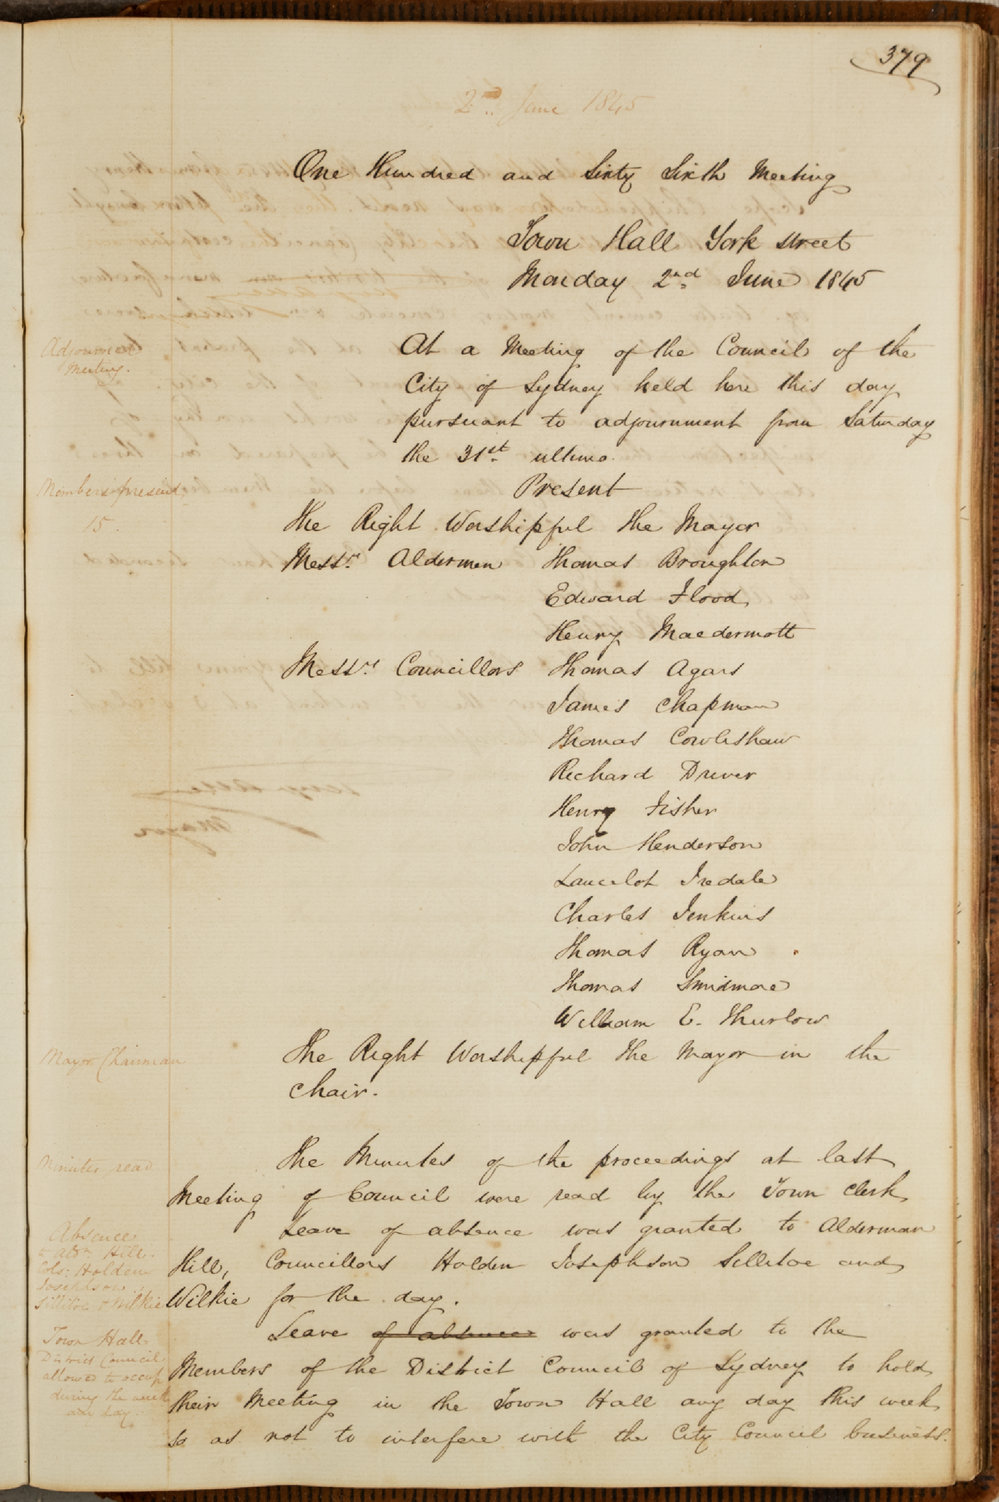 379
2nd June 1845
One Hundred and Sixty Sixth Meeting
Town Hall York Street
Monday 2nd June 1845
Adjourned
Meeting.
At a Meeting of the Council of the
City of Sydney held here this day
pursuant to adjournment from Saturday
the 31st ultimo.
Members present
15.
Present
The Right Worshipful The Mayor
Messrs. Aldermen Thomas Broughton
Edward Flood
Henry Macdermott
Messrs. Councillors Thomas Agars
James Chapman
Thomas Cowlishaw
Richard Driver
Henry Fisher
John Henderson
Lancelot Iredale
Charles Jenkins
Thomas Ryan
Thomas Smidmore
William E. Thurlow
Mayor Chairman
The Right Worshipful The Mayor in the
Chair.
Minutes read
The Minutes of the proceedings at last
Meeting of Council were read by the Town Clerk
Absence
to Aldn. Hill.
Cols: Holden
Josephson
Sillitoe & Wilkie
Leave of absence was granted to Alderman
Hill, Councillors Holden Josephson Sillitoe and
Wilkie for the day.
Town Hall
District Council
allowed to occupy
during the week
any day
Leave of absence was granted to the
Members of the District Council of Sydney to hold
their Meeting in the Town Hall any day this week
so as not to interfere with the City Council business.